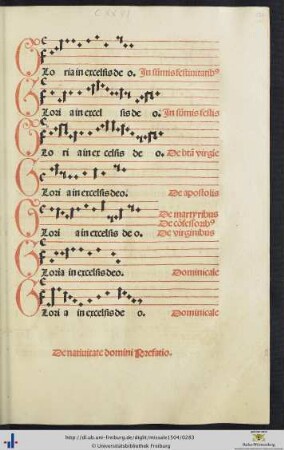 Glo ria in excelsis de o. In sūmis festiuitatibꝰ
Glori a in excel sis de o. In sūmis festis
Glo ri a in ex celsis de o. De btā virgīe
Glori a in excelsis deo. De apostolis
De martyribus
De cōfessoribꝰ
Glori a in excelsis de o. De virginibus
Gloria in excelsis deo. Dominicale
Glori a in excelsis de o. Dominicale
De natiuitate domini Prefatio.
http://dl.ub.uni-freiburg.de/diglit/missale1504/0283
© Universitätsbibliothek Freiburg